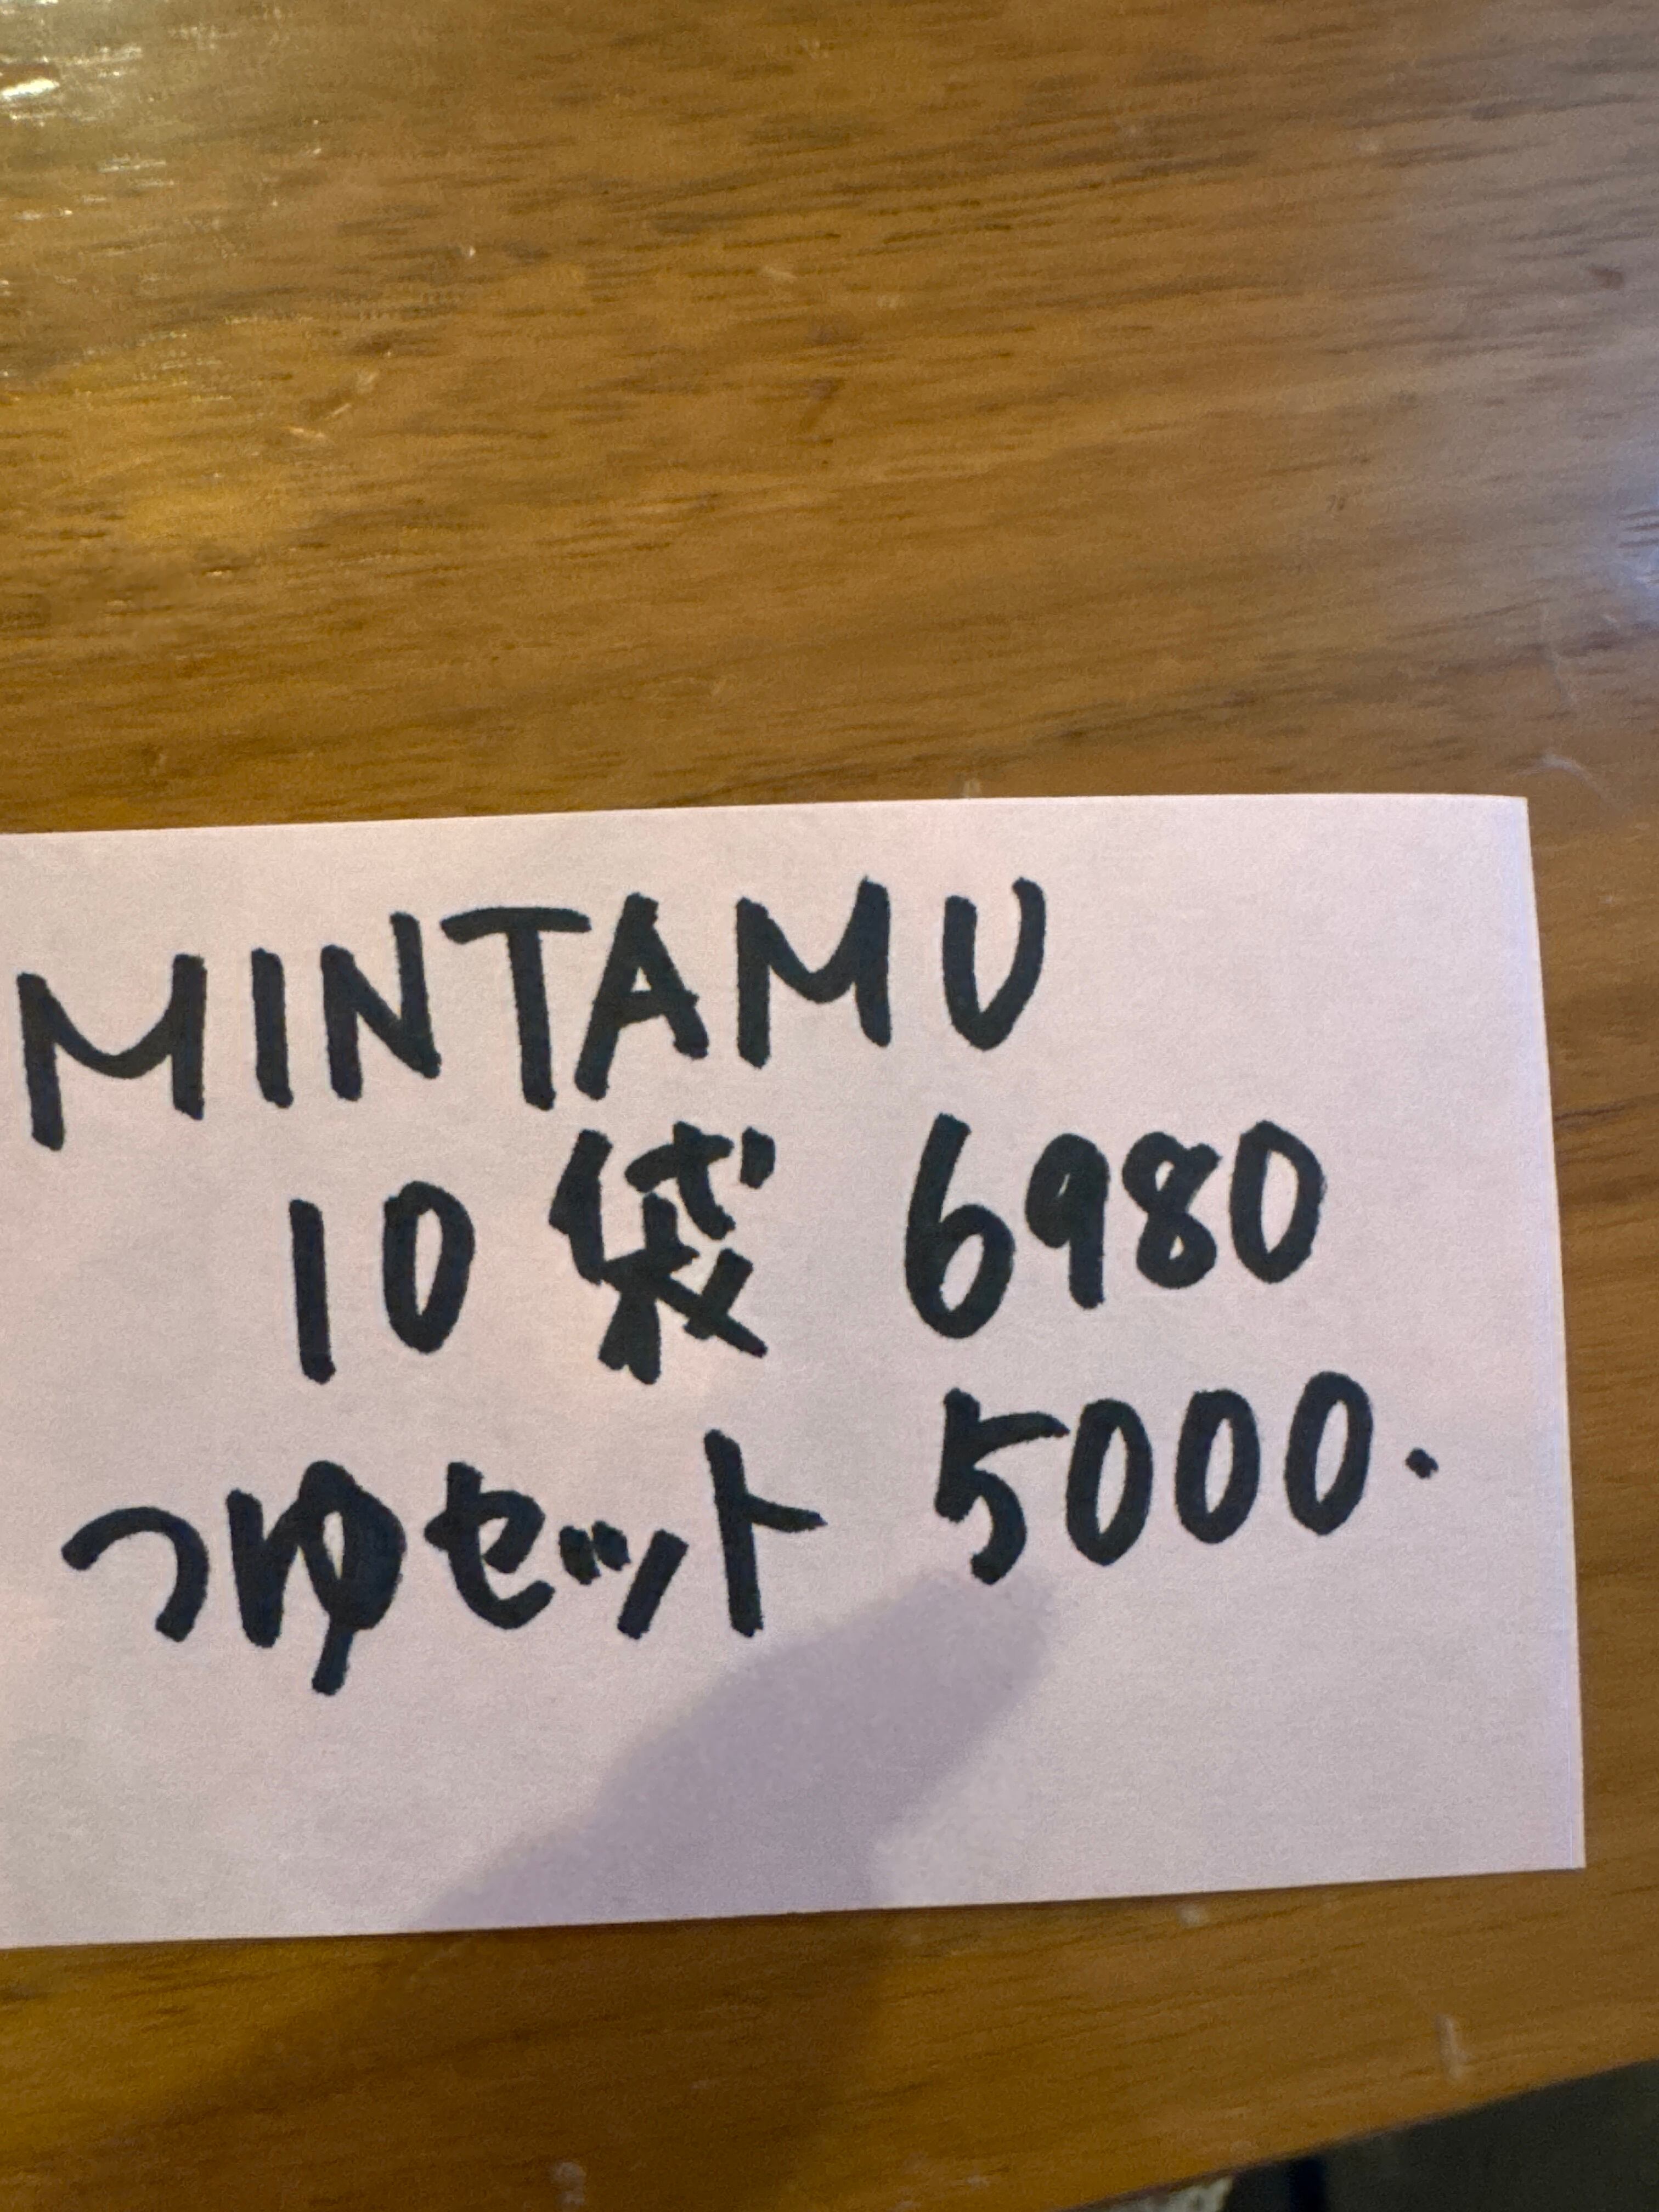 MINTAMU
10袋 6980
つゆセット 5000.